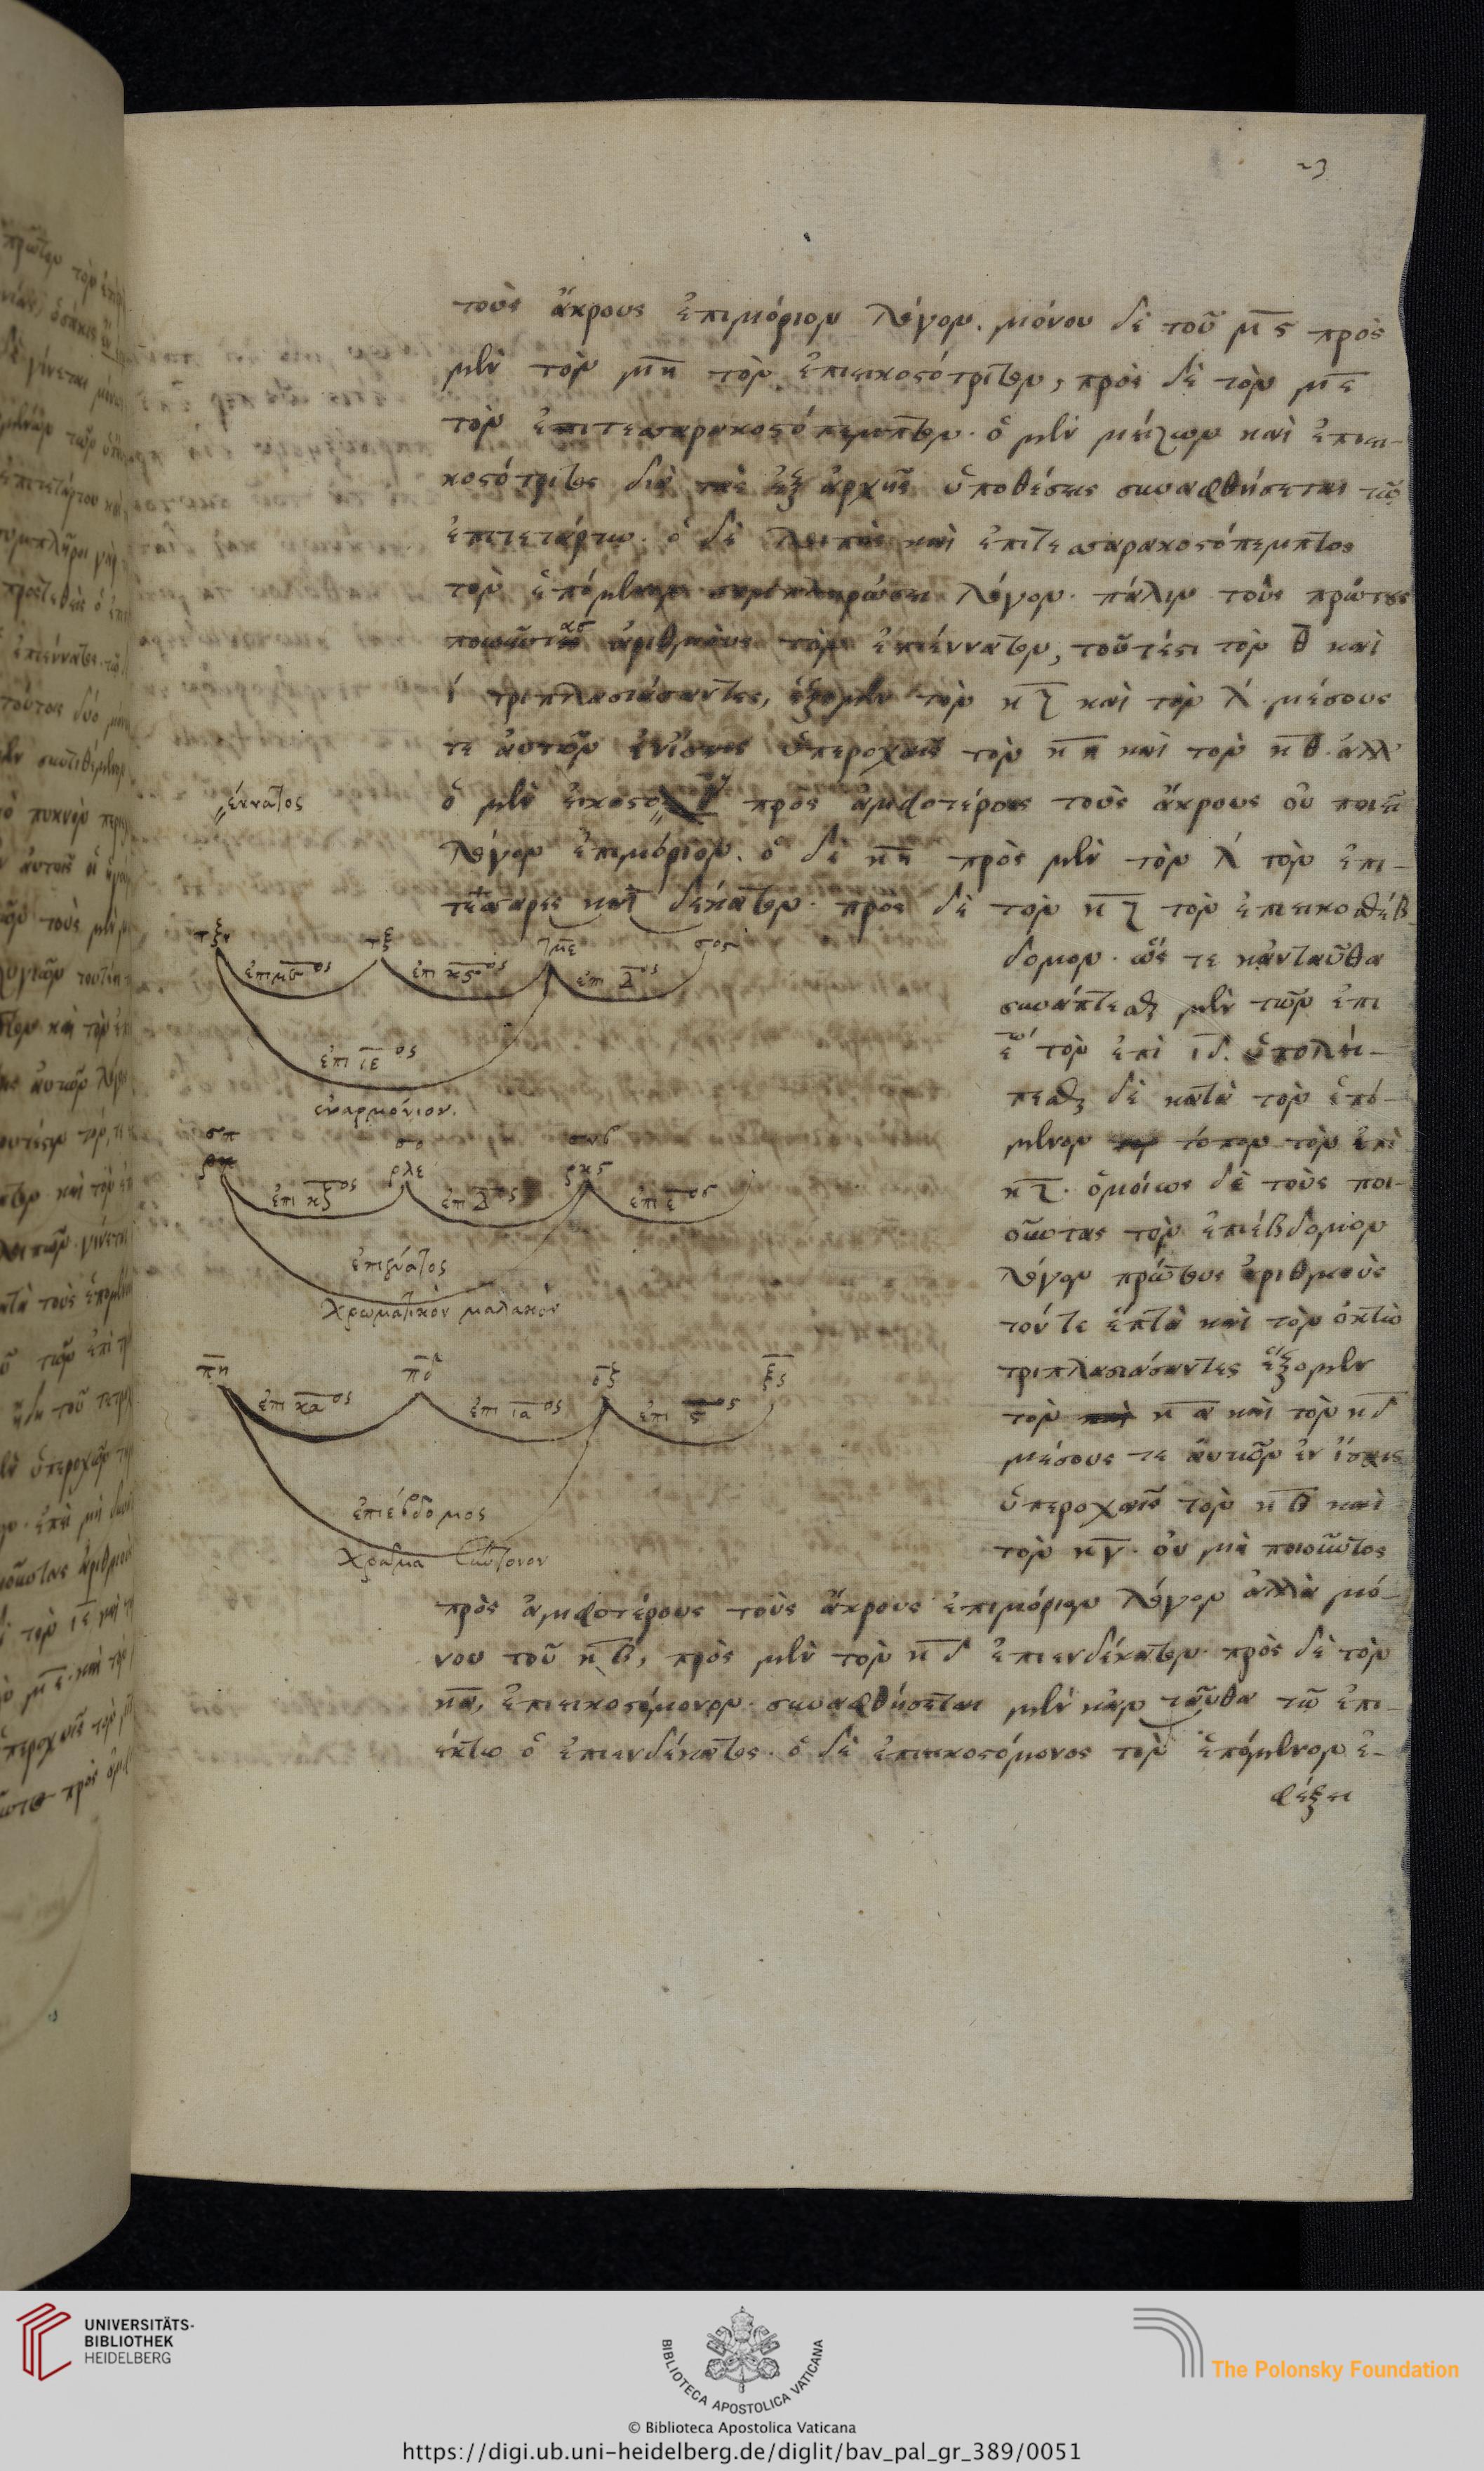 23
τοὺς ἄκρους ἐπιμόριον λόγον. μόνου δὲ τοῦ μ̅ς̅ πρὸς
μὲν τὸν μ̅η̅ τὸν ἐπιεικοστότριτον, πρὸς δὲ τὸν μ̅ε̅
τὸν ἐπιτεσσαρακοστόπεμπτον. ὁ μὲν μείζων καὶ ἐπιει-
κοστότριτος διὰ τὰς ἐξ ἀρχῆς ὑποθέσεις συναφθήσεται τῷ
ἐπιτετάρτῳ. ὁ δὲ λοιπὸς καὶ ἐπιτεσσαρακοστόπεμπτος
τὸν ἑπόμενον συμπληρώσει λόγον. πάλιν τοὺς πρώτους
ποιοῦντας ἀριθμοὺς τὸν ἐπιέννατον, τοῦτέστι τὸν θ̅ καὶ
ί τριπλασιάσαντες, ἕξομεν τὸν κ̅ζ̅ καὶ τὸν λ́. μέσους
τε αὐτῶν ἐνίσαις ὑπεροχαῖς τὸν κ̅η̅ καὶ τὸν κ̅θ̅. ἀλλ'
ὁ μὲν εἰκοστὸς πρὸς ἀμφοτέρους τοὺς ἄκρους οὐ ποιεῖ
έννατος
λόγον ἐπιμόριον. ὁ δὲ κ̅η̅ πρὸς μὲν τὸν λ́ τὸν ἐπι-
τέσσαρες καὶ δέκατον. πρὸς δὲ τὸν κ̅ζ̅ τὸν ἐπιεικοσθέβ
δομον. ὥς τε κἀνταῦθα
συνάπτεσθαι μὲν τῶν ἐπι
ε̅ʹ τὸν ἐπὶ ιδ̅. ὑπολεί-
πεσθαι δὲ κατὰ τὸν ἑπό-
μενον τόπον τὸν ἐπὶ
κ̅ζ̅. ὁμοίως δὲ τοὺς ποι-
οῦντας τὸν ἐπιέβδομον
λόγον πρώτους ἀριθμοὺς
τόν τε ἑπτὰ καὶ τὸν ὀκτὼ
τριπλασιάσαντες ἕξομεν
τὸν κ̅α̅ καὶ τὸν κ̅δ̅
μέσους τε αὐτῶν ἐν ἴσαις
ὑπεροχαῖς τὸν κ̅β̅ καὶ
τὸν κ̅γ̅. οὐ μὴ ποιοῦντος
πρὸς ἀμφοτέρους τοὺς ἄκρους ἐπιμόριον λόγον ἀλλὰ μό-
νου τοῦ κ̅β̅, πρὸς μὲν τὸν κ̅δ̅ ἐπιενδέκατον πρὸς δὲ τὸν
κ̅α̅, ἐπιεικοσόμονον. συναφθήσεται μὲν κἀν ταῦθα τῷ ἐπι-
έκτῳ ὁ ἐπιενδέκατος. ὁ δὲ ἐπιεικοσόμονος τὸν ἑπόμενον ἐ-
φέξει
τξη τξ τμε σος
ἐπι με̅ος ἐπι κγ̅ος ἐπι δ̅ος
ἐπι ιε̅ος
ἐναρμόνιον.
σπ σο σνβ
ρμ ρλε ρκς
ἐπι κζ̅ος ἐπι ιδ̅ος ἐπι ε̅ος
ἐπιέννατος
χρωματικὸν μαλακὸν
π̅η̅ π̅δ̅ ο̅ζ̅ ξ̅ς̅
ἐπι κα̅ος ἐπι ια̅ος ἐπι ς̅ος
ἐπιέβδομος
χρῶμα σύντονον
UNIVERSITÄTS-
BIBLIOTHEK
HEIDELBERG
BIBLIOTECA APOSTOLICA VATICANA
The Polonsky Foundation
© Biblioteca Apostolica Vaticana
https://digi.ub.uni-heidelberg.de/diglit/bav_pal_gr_389/0051